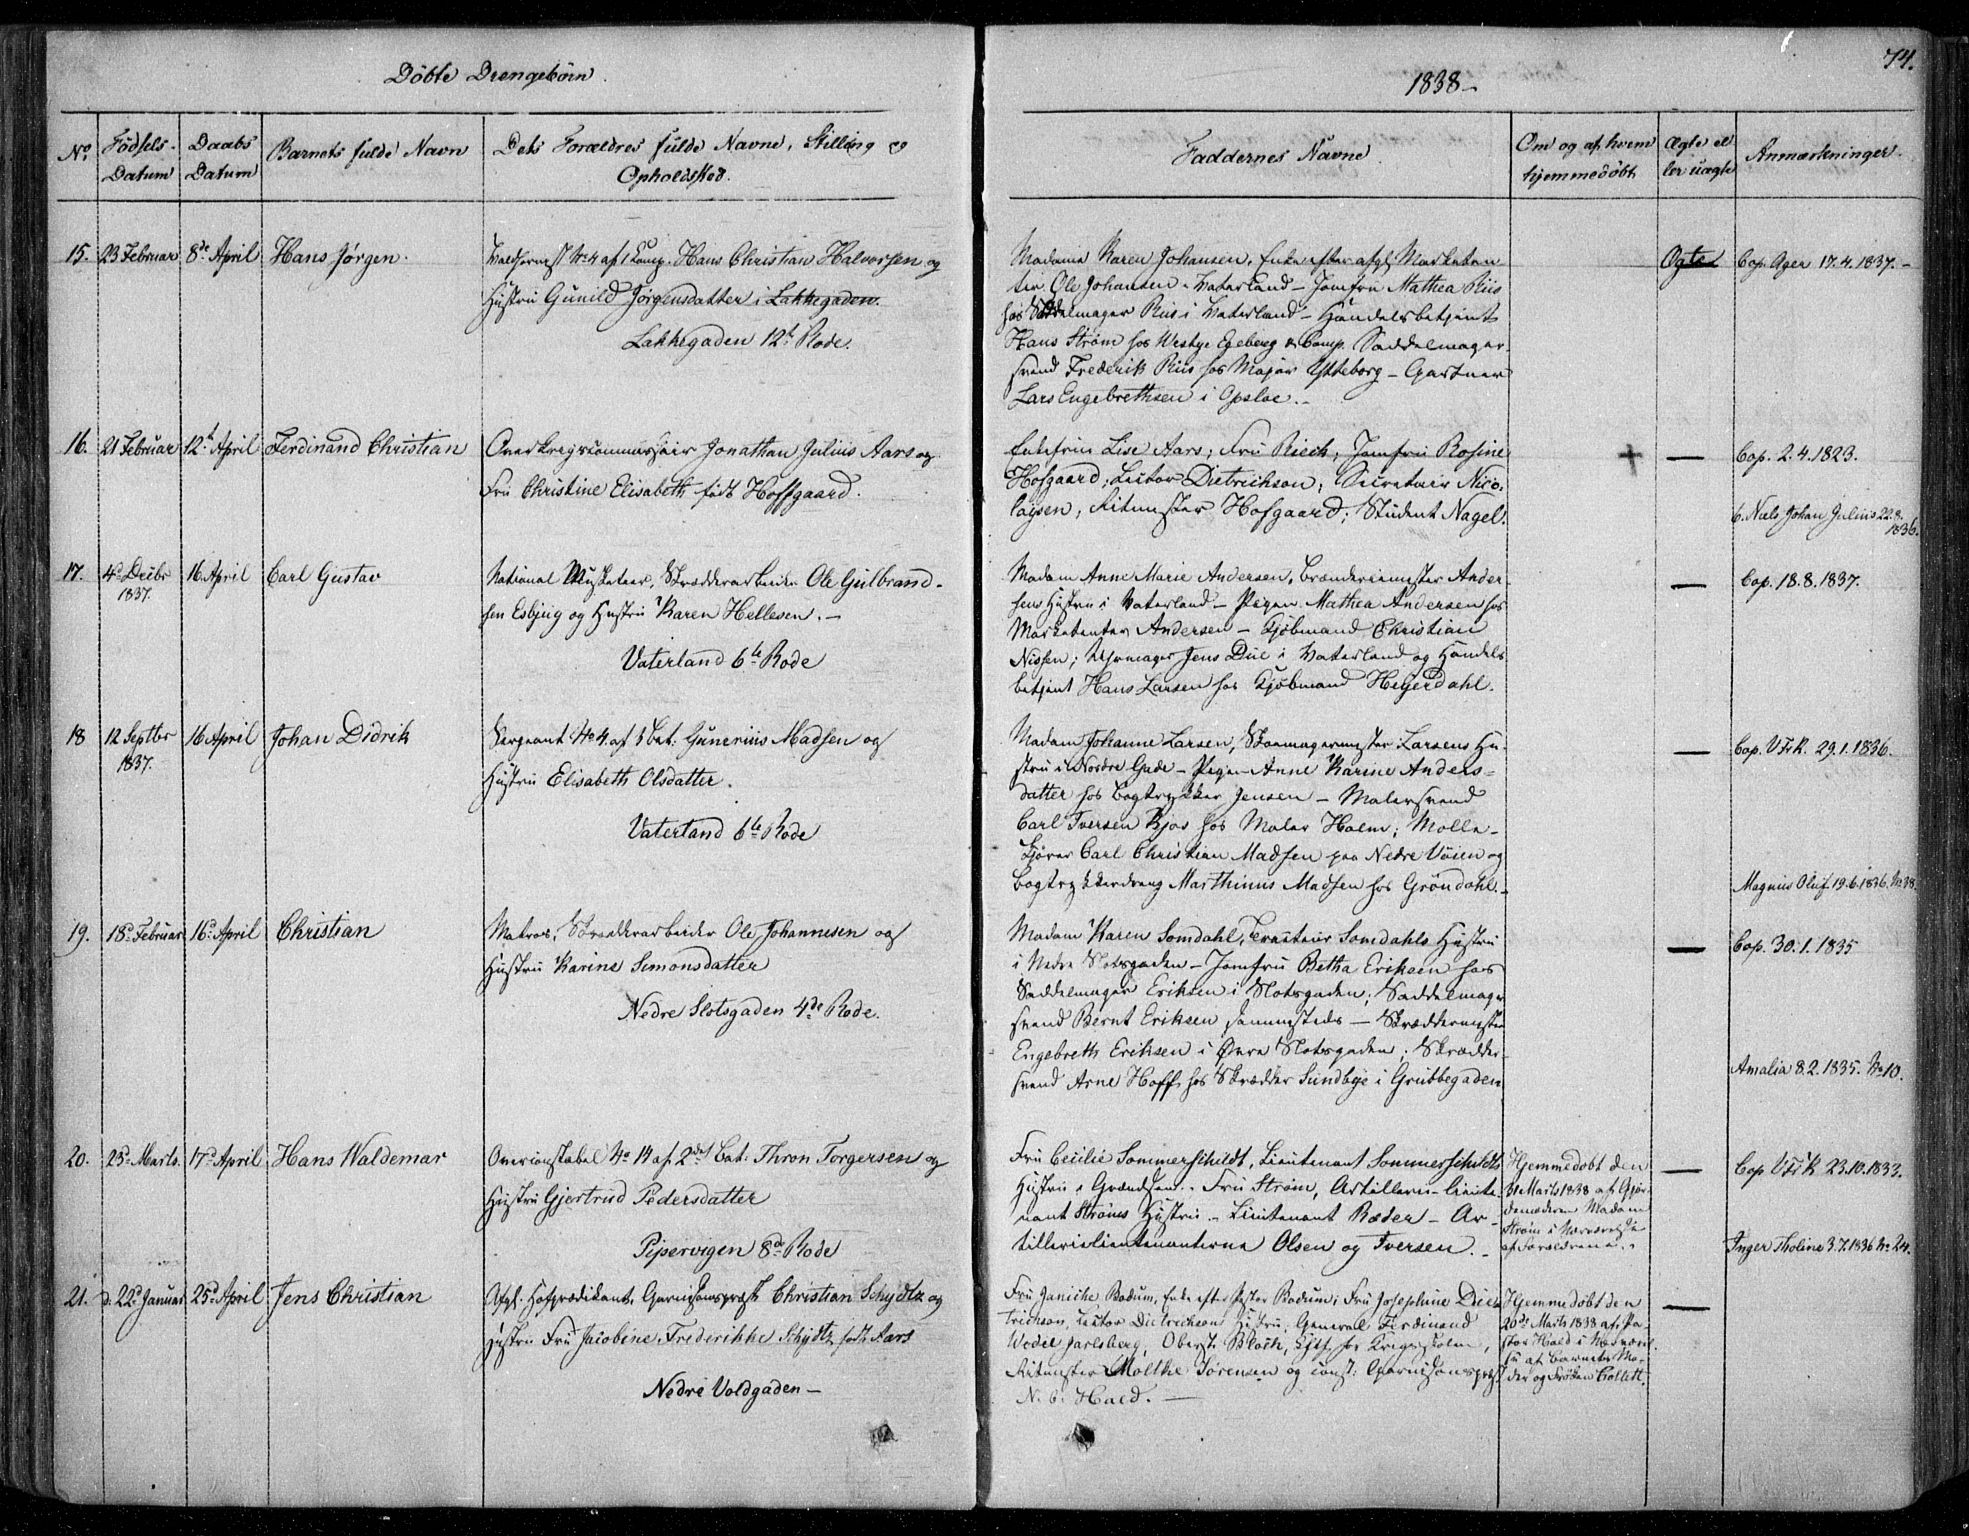 74.
Döbte Drengebörn.
1838
No.
Födsels-
Datum
Daabs
Datum
Barnets fulde Navn
Dets Forældres fulde Navne, Stilling og
Opholdsted.
Faddernes Navne
Om og af hvem
hjemmedöbt
Ægte el
ler uægte
Anmærkninger.
15. 23 Februar 8de April Hans Jörgen.
No 4 af 1 Comp. Hans Christian Halvorsen og
Hustru Gunild Jörgensdatter i Lakkegaden.
Lakkegaden 12t Rode.
Madame Karen Johansen, Enke efter afg. Marketen
ter Ole Johansen i Vaterland – Jomfru Mathea Riis
hos Saddelmager Riis i Vaterland – Handelsbetjent
Hans Ström hos Westye Egeberg & Comp. Saddelmager
svend Frederik Riis hos Major Ytteborg – Gartner
Lars Engebrethsen i Opsloe.
Ægte
Cop. Ager 17.4.1837.–
16. 21 Februar 12t April Ferdinand Christian
Overkrigscommissair Jonathan Julius Aars og
Fru Christine Elisabeth födt Hoffgaard.
Enkefrue Lise Aars; Fru Riech; Jomfru Rosine
Hofgaard; Lector Dietrichson; Secretair Nico-
laysen, Ritmester Hofgaard; Student Nagel.
+ —
Cop. 2.4.1823.
b. Niels Johan Julius 22.8.
1836.
17. 4d Decbr 16 April Carl Gustav
1837.
National Musketeer, Skrædderarbeider Ole Gulbrand-
sen Esbjug og Hustru Karen Hellesen.–
Vaterland 6te Rode
Madam Anne Marie Andersen, Brænderiemester Ander-
sens Hustru i Vaterland – Pigen Mathea Andersen hos
Marketenter Andersen – Kjöbmand Christian
Nissen; Uhrmager Jens Due i Vaterland og Handels
betjent Hans Larsen hos Kjöbmand Heyerdahl.
—
Cop. 18.8.1837.
18 12 Septbr 16 April Johan Didrik
1837.
Sergeant No 4 af Bat. Gunerius Madsen og
Hustru Elisabeth Olsdatter.
Vaterland 6te Rode
Madam Johanne Larsen, Skomagermester Larsens Hu-
stru i Nordre Gade – Pigen Anne Karine Anders-
datter hos Bogtrykker Jensen – Malersvend
Carl Iversen Kjos hos Maler Holm; Mölle-
kjörer Carl Christian Madsen paa Nedre Vöien og
Bogtrykkerdreng Marthinus Madsen hos Gröndahl.–
—
Cop. VFrK. 29.1.1836.
Magnus Oluf 19.6.1836. No 38.
19. 18d Februar 16d April Christian
Matros, Skrædderarbeider Ole Johannesen og
Hustru Karine Simonsdatter
Nedre Slotsgaden 4de Rode.
Madam Karen Somdahl, Somdahls Hustru
i Nedre Slotsgaden – Jomfru Betha Eriksen hos
Saddelmager Eriksen i Slotsgaden; Saddelmager
svend Bernt Eriksen sammesteds – Skræddermester
Engebreth Eriksen i Övre Slotsgaden; Skrædder-
svend Arne Hoff hos Skrædder Sundbye i Grubbegaden
—
Cop. 30.1.1835
Amalia 8.2.1835. No 10.
20. 23d Marts. 17d April Hans Waldemar
Overconstabel No 14 af 2det Bat: Thron Torgersen og
Hustru Gjertrud Pedersdatter
Pipervigen 8de Rode
Fru Cecilie Sommerschildt, Lieutenant Sommerschildts
Hustru i Grændsen. Fru Ström, Artillerie-Lieute-
nant Ströms Hustru – Lieutenant Ræder – Ar-
tillerielieutenanterne Olsen og Iversen.
Hjemmedöbt den
31 Marts 1838 af Gjor-
demoderen Madam
Ström i Nærværelse
af Forældrene.
—
Cop VFrK 23.10.1833.
Inger Tholine 3.7.1836 No 24.
21. d. 22d Januar 25d April Jens Christian
Afg. Hofprædikant, Garnisonspræst Christian Schydtz og
Hustru Fru Jacobine Frederikke Schydtz födt Aars
Nedre Voldgaden –
Fru Janiche Bodum, Enke efter Bodum; Fru Josephine Diet-
trichson, Lector Dietrichsons Hustru; General Ferdinand
Wedel Jarlsberg, Oberst Bloch, Chef for Krigsskolen,
Ritmester Molthe Sörensen og const. Garnisonspræst
N. C. Hald. —
Hjemmedöbt den
20de Marts 1838 af Pa-
stor Hald i Nærværel-
se af Barnets Mo-
der og Fröken Collett.
—